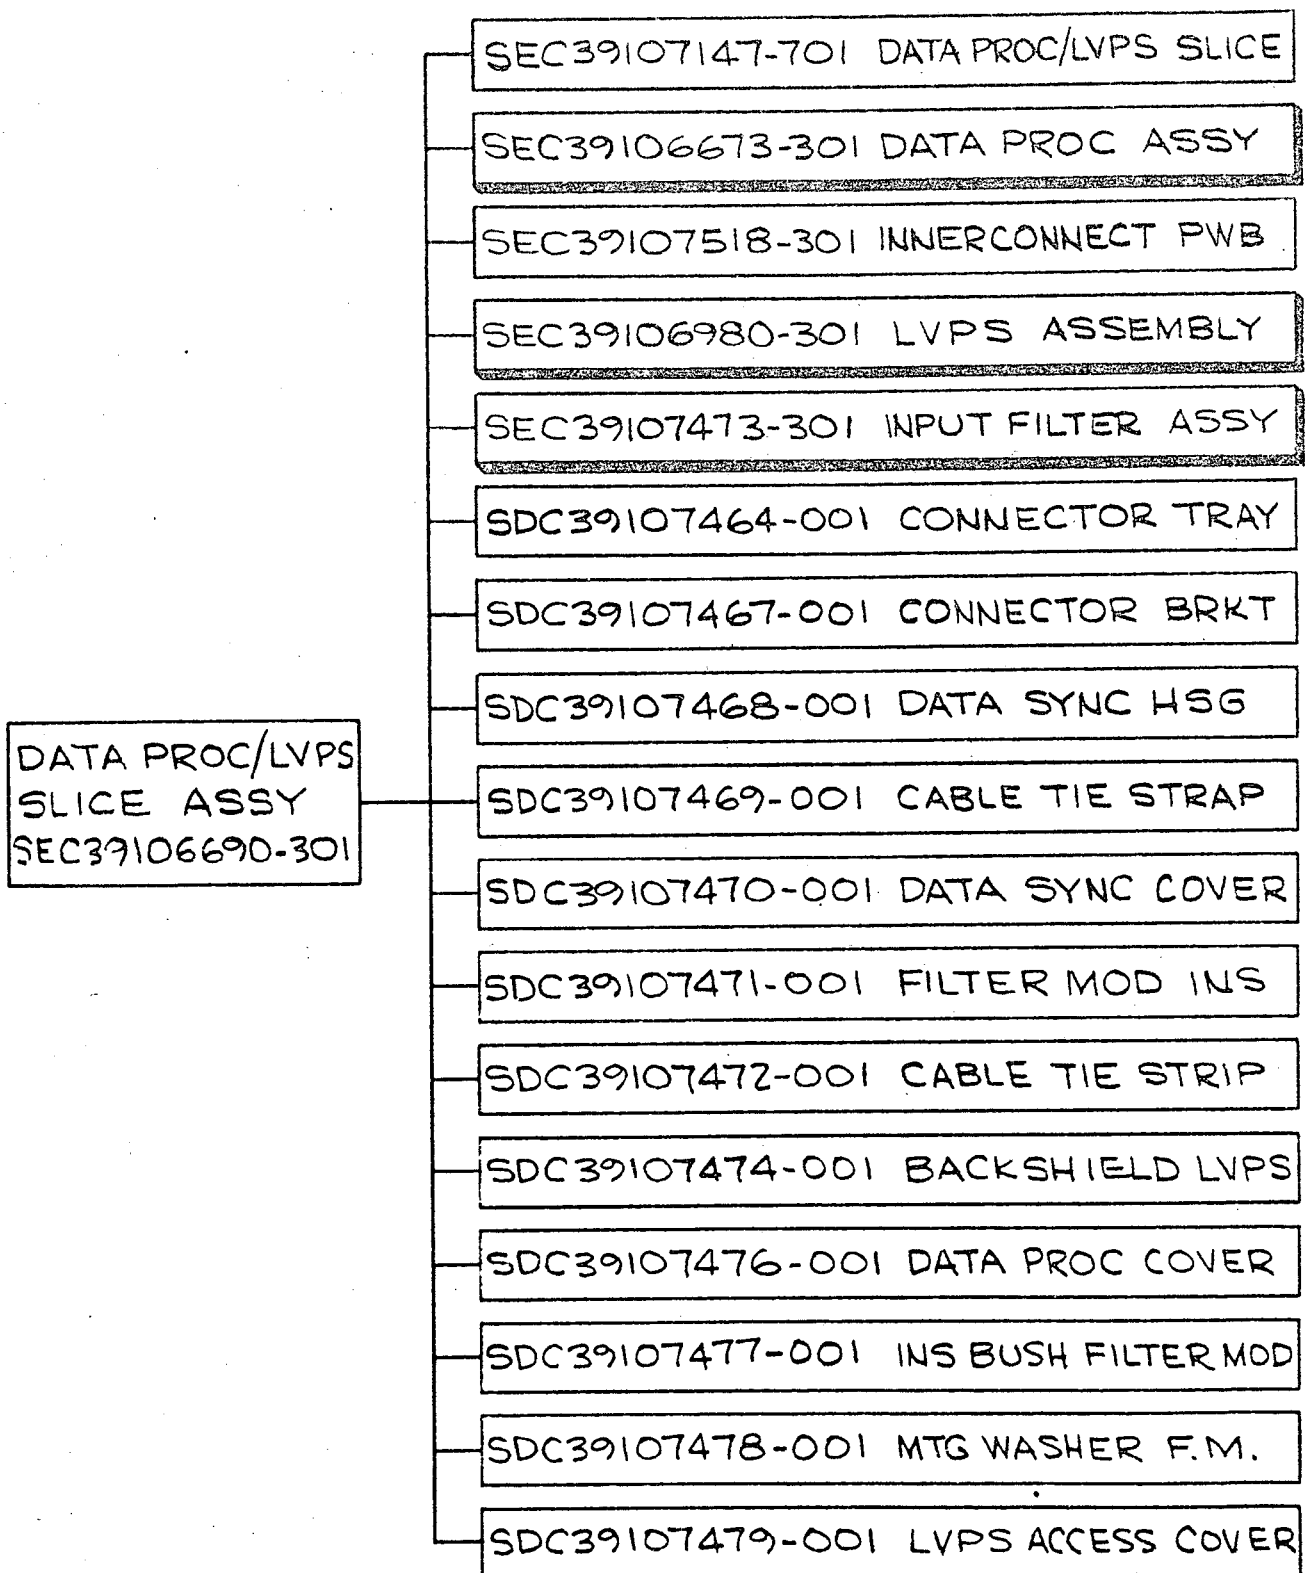 SEC39107147-701 DATA PROC/LVPS SLICE
SEC39106673-301 DATA PROC ASSY
SEC39107518-301 INNERCONNECT PWB
SEC39106980-301 LVPS ASSEMBLY
SEC39107473-301 INPUT FILTER ASSY
SDC39107464-001 CONNECTOR TRAY
SDC39107467-001 CONNECTOR BRKT
SDC39107468-001 DATA SYNC HSG
DATA PROC/LVPS
SLICE ASSY
SEC39106690-301
SDC39107469-001 CABLE TIE STRAP
SDC39107470-001 DATA SYNC COVER
SDC39107471-001 FILTER MOD INS
SDC39107472-001 CABLE TIE STRIP
SDC39107474-001 BACKSHIELD LVPS
SDC39107476-001 DATA PROC COVER
SDC39107477-001 INS BUSH FILTER MOD
SDC39107478-001 MTG WASHER F.M.
SDC39107479-001 LVPS ACCESS COVER